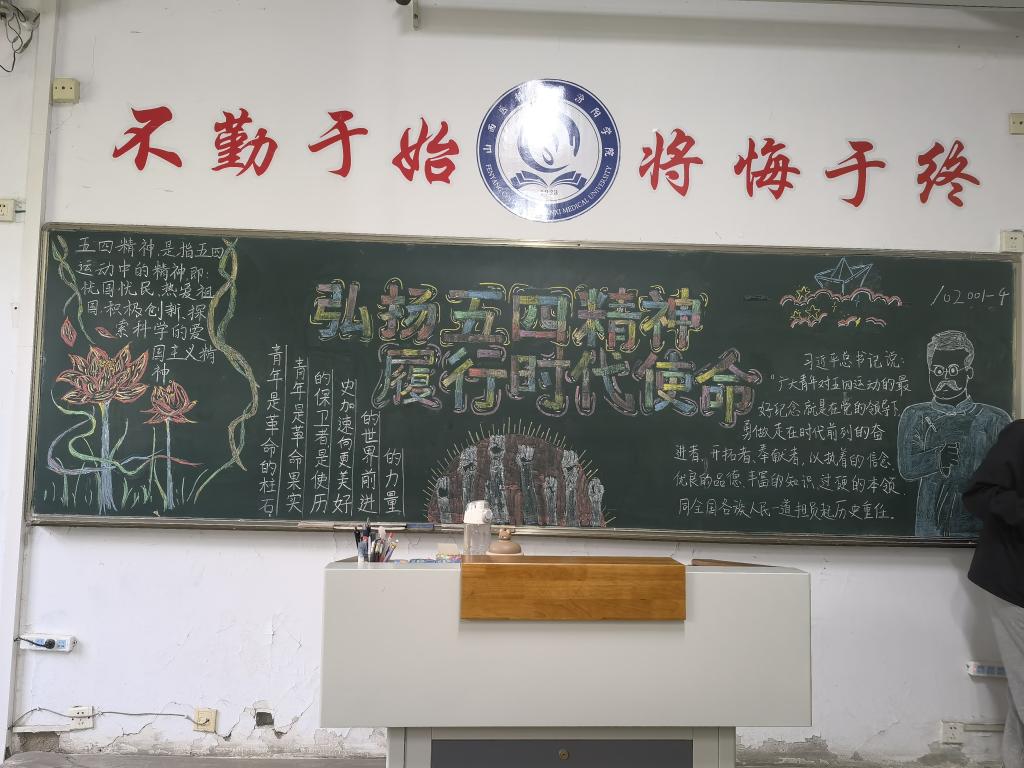 不勤于始
将悔于终
山西医科大学汾阳学院
1928
五四精神是指五四
运动中的精神即:
忧国忧民、热爱祖
国、积极创新、探
索科学的爱
国主义精
神
弘扬五四精神
履行时代使命
青年是革命的柱石
青年是革命果实
的保卫者是使历
史加速向更美好
的世界前进
的力量
102001-4
习近平总书记说:
“广大青年对五四运动的最
好纪念就是在党的领导下
勇做走在时代前列的奋
进者、开拓者、奉献者,以执着的信念、
优良的品德、丰富的知识、过硬的本领
同全国各族人民一道担负起历史重任。